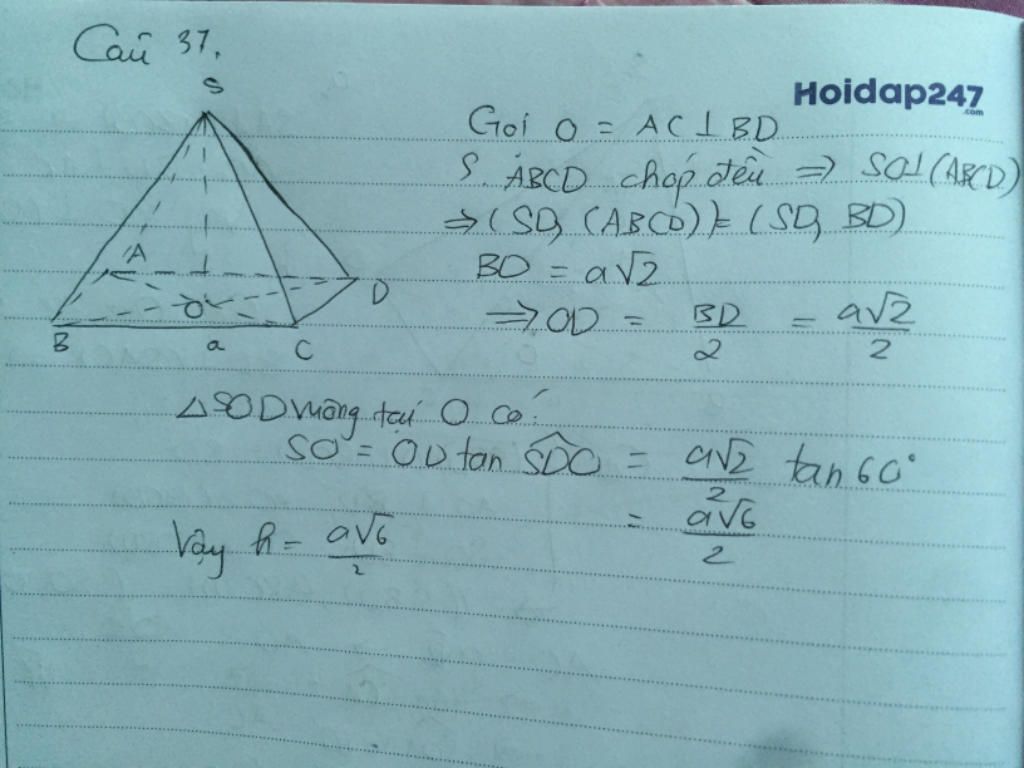 Câu 37.
Hoidap247
.com
S
A
B
C
D
O
a
Gọi O = AC ⊥ BD
S.ABCD chóp đều => SO⊥(ABCD)
=> (SD, (ABCD)) = (SD, BD)
BD = a√2
=> OD = BD/2 = a√2/2
△SOD vuông tại O có:
SO = OD tan SDO = a√2/2 tan 60°
= a√6/2
Vậy h = a√6/2